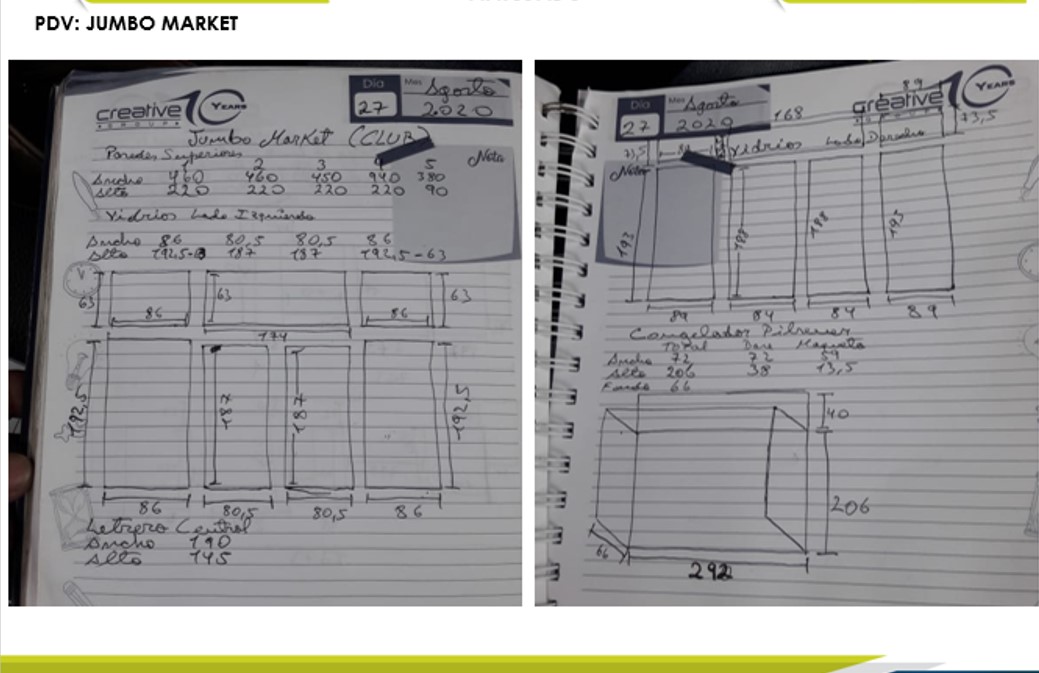 PDV: JUMBO MARKET
creative 10 YEARS
GROUP
Día Mes Agosto
27 2020
Jumbo Market (CLUB)
Nota
Paredes Superiores
1 2 3 4 5
Ancho 460 460 450 940 380
Alto 220 220 220 220 90
Vidrios Lado Izquierdo
Ancho 86 80,5 80,5 86
Alto 192,5-63 187 187 192,5-63
63 63 63
86 86
174
192,5 187 187 192,5
86 80,5 80,5 86
Letrero Central
Ancho 190
Alto 145
Día Mes Agosto
27 2020
168
89
creative 10 YEARS
GROUP
73,5 73,5
Vidrios Lado Derecho
Nota
193 188 188 193
89 84 84 89
Congelador Pilsener
Total Base Maqueta
Ancho 72 72 59
Alto 206 38 13,5
Fondo 66
40
206
66
292